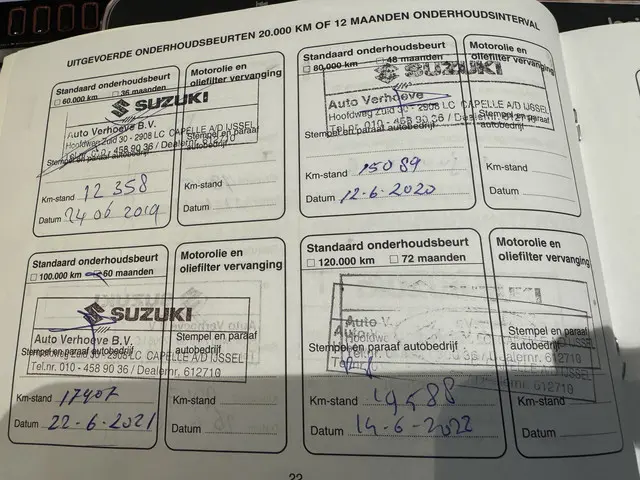 UITGEVOERDE ONDERHOUDSBEURTEN 20.000 KM OF 12 MAANDEN ONDERHOUDSINTERVAL
Standaard onderhoudsbeurt
☐ 60.000 km ☐ 36 maanden
SUZUKI
Auto Verhoeve B.V.
Hoofdweg Zuid 30 - 2908 LC CAPELLE A/D IJSSEL
Stempel en paraaf autobedrijf
Tel.nr. 010 - 458 90 36 / Dealernr. 612710
Km-stand 12 358
Datum 24 06 2019
Motorolie en
oliefilter vervanging
Stempel en paraaf
autobedrijf
Km-stand
Datum
Standaard onderhoudsbeurt
☐ 80.000 km ☐ 48 maanden
SUZUKI
Auto Verhoeve
Hoofdweg Zuid 30 - 2908 LC CAPELLE A/D IJSSEL
Stempel en paraaf autobedrijf
Tel.nr. 010 - 458 90 36 / Dealernr. 612710
Km-stand 15089
Datum 12-6-2020
Motorolie en
oliefilter vervanging
Stempel en paraaf
autobedrijf
Km-stand
Datum
Standaard onderhoudsbeurt
☐ 100.000 km 60 maanden
SUZUKI
Auto Verhoeve B.V.
Hoofdweg Zuid 30 - 2908 LC CAPELLE A/D IJSSEL
Stempel en paraaf autobedrijf
Tel.nr. 010 - 458 90 36 / Dealernr. 612710
Km-stand 17407
Datum 22-6-2021
Motorolie en
oliefilter vervanging
Stempel en paraaf
autobedrijf
Km-stand
Datum
Standaard onderhoudsbeurt
☐ 120.000 km ☐ 72 maanden
Auto V
Stempel en paraaf autobedrijf
Dealernr. 612710
Km-stand 19588
Datum 14-6-2022
Motorolie en
oliefilter vervanging
Stempel en paraaf
autobedrijf
Km-stand
Datum